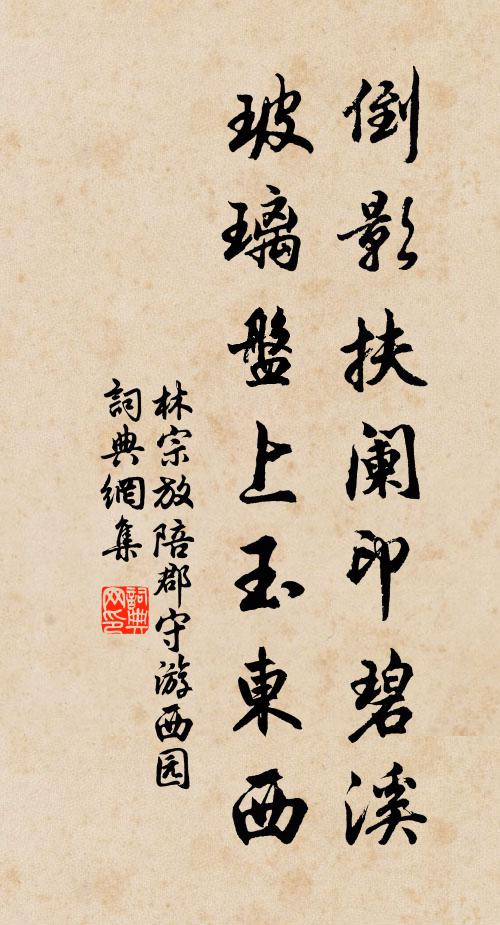 倒影扶阑印碧溪
玻璃盤上玉東西
林宗放陪郡守游西园
詞典網集
詞典网印